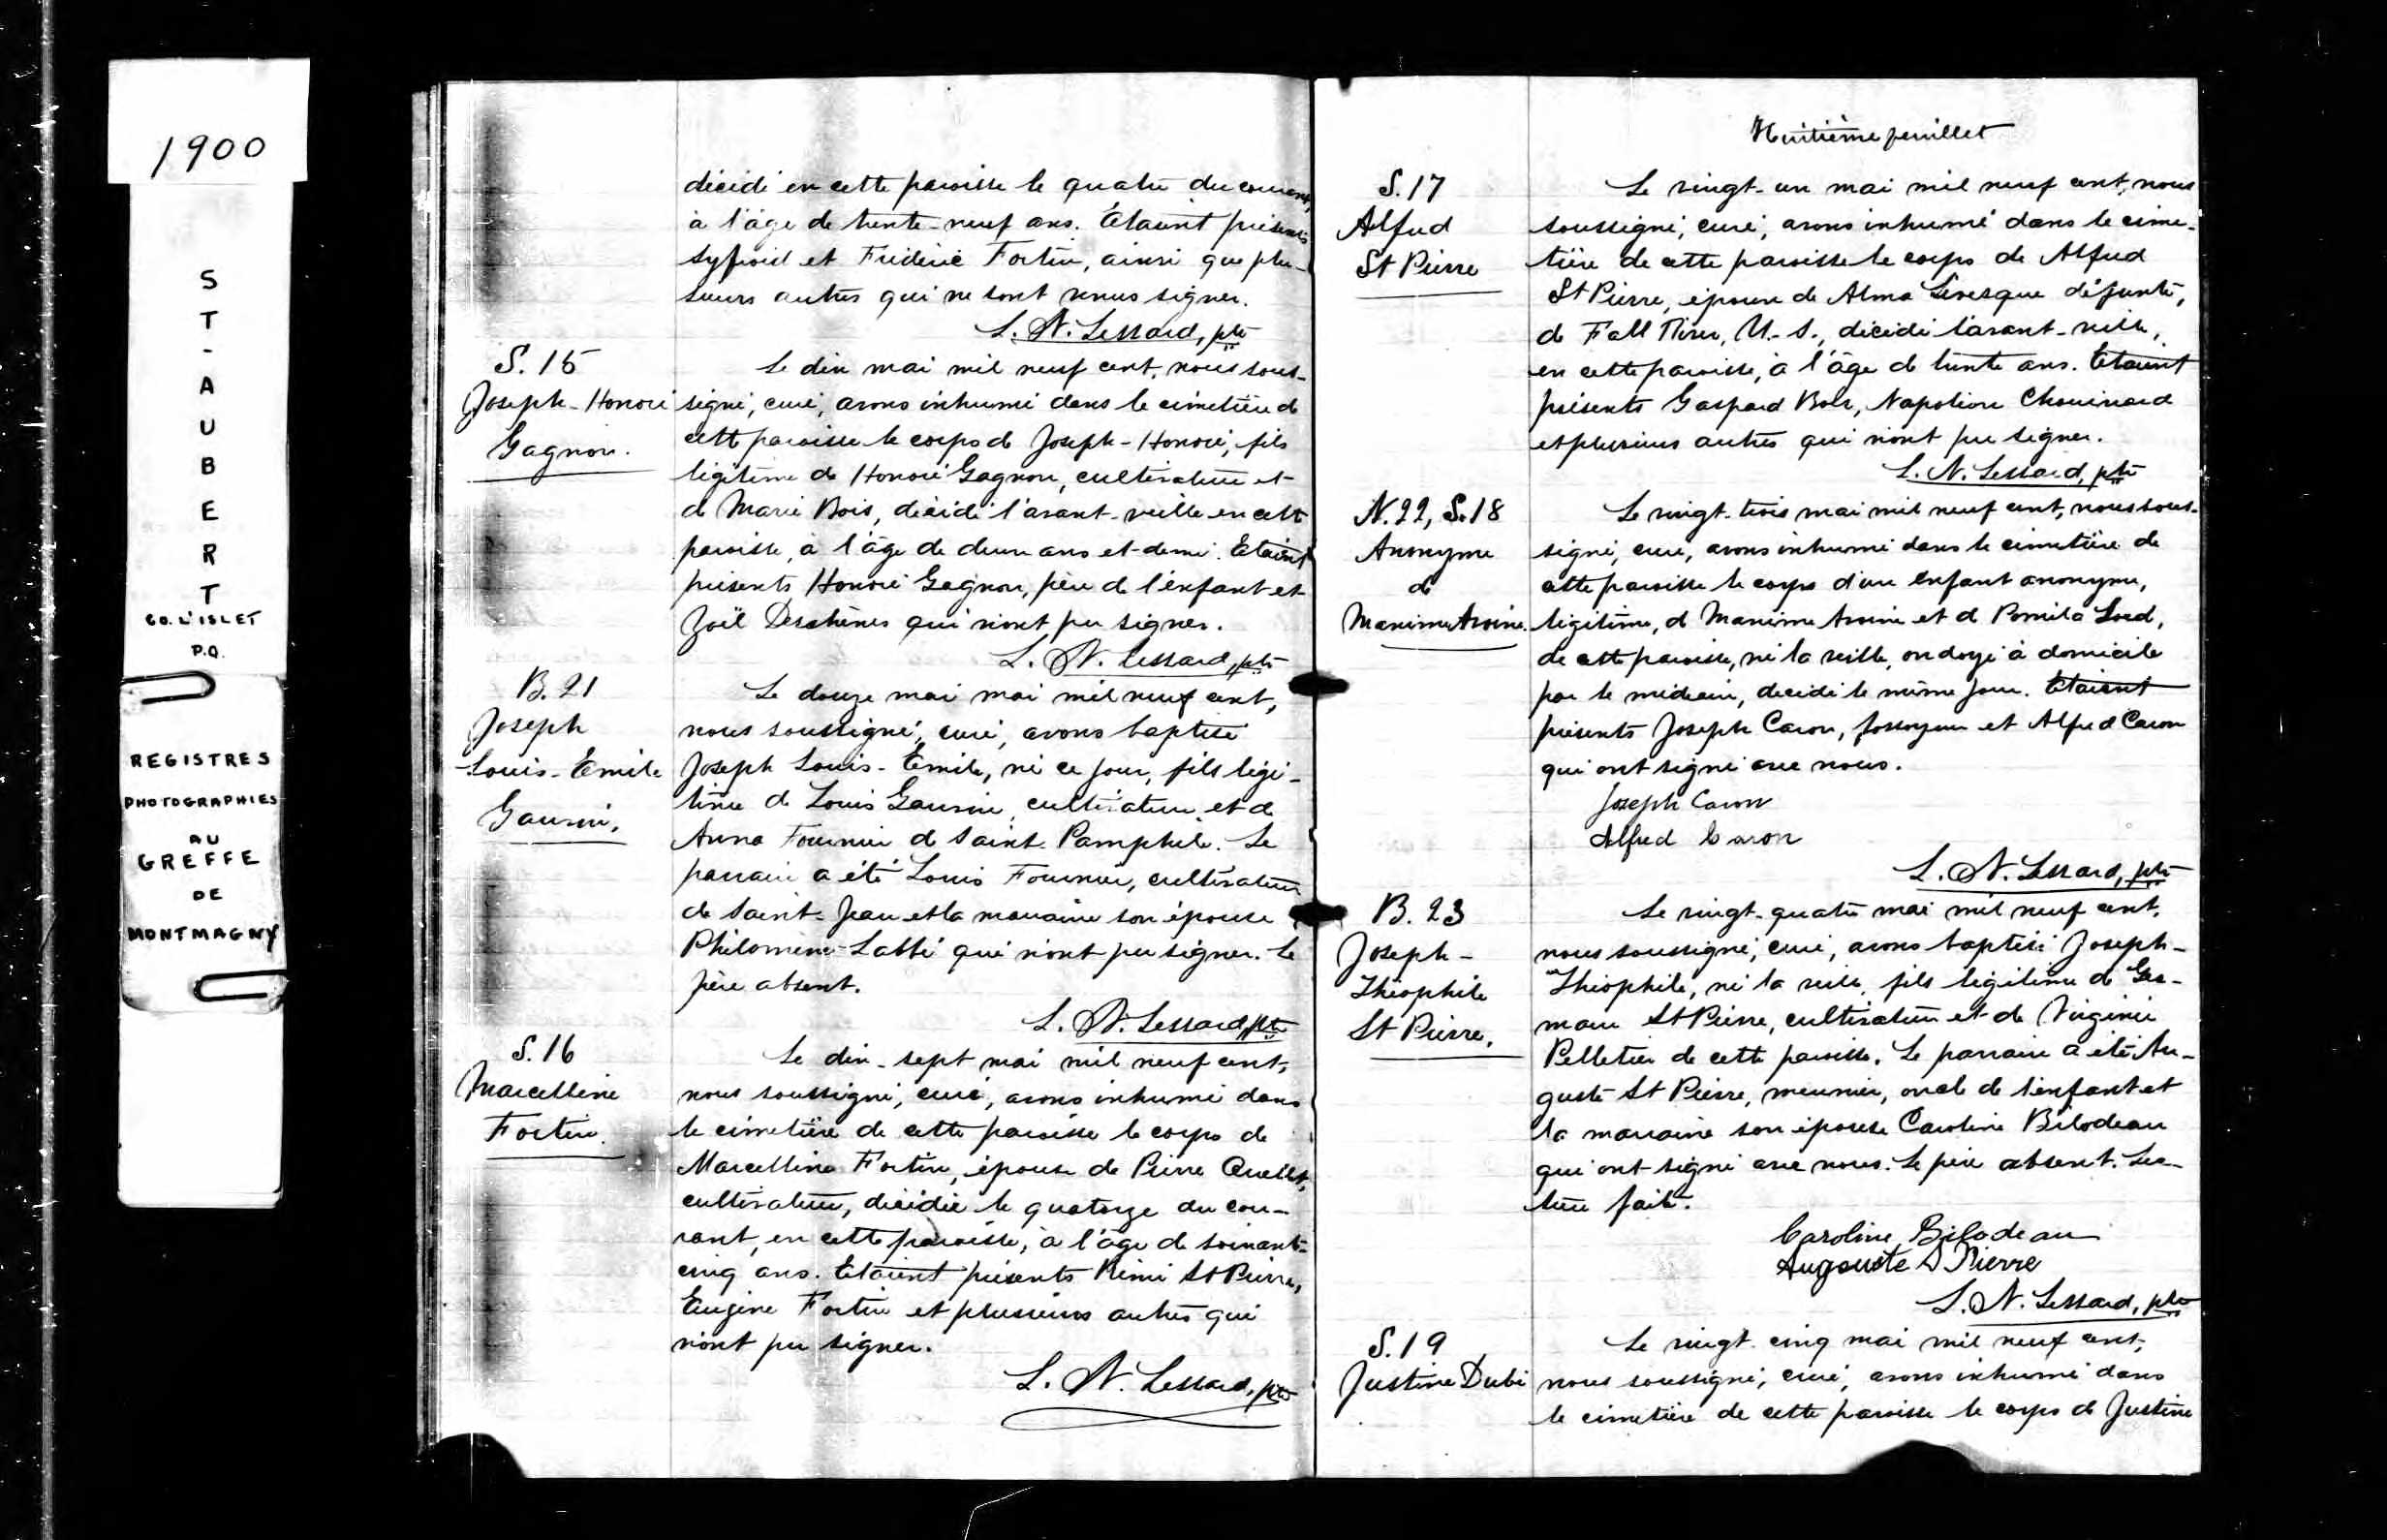 1900
ST-AUBERT
CO. L'ISLET
P.Q.
REGISTRES
PHOTOGRAPHIES
AU
GREFFE
DE
MONTMAGNY
décédé en cette paroisse le quatre du courant,
à l'âge de trente-neuf ans. Etaient présents
et Frédéric Fortin, ainsi que plu-
sieurs autres qui ne sont venus signer.
L. N. Lessard, ptre
S. 15
Joseph-Honoré
Gagnon.
Le dix mai mil neuf cent, nous sous-
signé, curé, avons inhumé dans le cimetière de
cette paroisse le corps de Joseph-Honoré, fils
légitime de Honoré Gagnon, cultivateur et
de Marie Bois, décédé l'avant-veille en cette
paroisse, à l'âge de deux ans et demi. Etaient
présents Honoré Gagnon, père de l'enfant et
Joël Deschènes qui n'ont pu signer.
L. N. Lessard, ptre
B. 21
Joseph
Louis-Emile
Gauvin.
Le douze mai mai mil neuf cent,
nous soussigné, curé, avons baptisé
Joseph Louis-Emile, né ce jour, fils légi-
time de Louis Gauvin, cultivateur et de
Anna Fournier de Saint-Pamphile. Le
parrain a été Louis Fournier, cultivateur
de Saint-Jean et la marraine son épouse
Philomène Labbé qui n'ont pu signer. Le
père absent.
L. N. Lessard, ptre
S. 16
Marcelline
Fortin.
Le dix-sept mai mil neuf cent,
nous soussigné, curé, avons inhumé dans
le cimetière de cette paroisse le corps de
Marcelline Fortin, épouse de Pierre Ouellet,
cultivateur, décédée le quatorze du cou-
rant, en cette paroisse, à l'âge de soixante-
cinq ans. Etaient présents Rémi St Pierre,
Eugène Fortin et plusieurs autres qui
n'ont pu signer.
L. N. Lessard, ptre
Huitième feuillet
S. 17
Alfred
St Pierre
Le vingt-un mai mil neuf cent, nous
soussigné, curé, avons inhumé dans le cime-
tière de cette paroisse le corps de Alfred
St Pierre, époux de Alma Levesque défunte,
de Fall River, U.-S., décédé l'avant-veille,
en cette paroisse, à l'âge de trente ans. Etaient
présents Gaspard Bois, Napoléon Chouinard
et plusieurs autres qui n'ont pu signer.
L. N. Lessard, ptre
N. 22, S. 18
Anonyme
de
Maxime Avoine.
Le vingt-trois mai mil neuf cent, nous sous-
signé, curé, avons inhumé dans le cimetière de
cette paroisse le corps d'un enfant anonyme,
légitime, de Maxime Avoine et de Pomela Lord,
de cette paroisse, né la veille, ondoyé à domicile
par le médecin, décédé le même jour. Etaient
présents Joseph Caron, fossoyeur et Alfred Caron
qui ont signé avec nous.
Joseph Caron
Alfred Caron
L. N. Lessard, ptre
B. 23
Joseph-
Théophile
St Pierre.
Le vingt-quatre mai mil neuf cent,
nous soussigné, curé, avons baptisé Joseph-
Théophile, né la veille, fils légitime de Ger-
main St Pierre, cultivateur et de Virginie
Pelletier de cette paroisse. Le parrain a été Au-
guste St Pierre, meunier, oncle de l'enfant et
la marraine son épouse Caroline Bilodeau
qui ont signé avec nous. Le père absent. Lec-
ture faite.
Caroline Bilodeau
Augouste S Pierre
L. N. Lessard, ptre
S. 19
Justine Dubé
Le vingt-cinq mai mil neuf cent,
nous soussigné, curé, avons inhumé dans
le cimetière de cette paroisse le corps de Justine